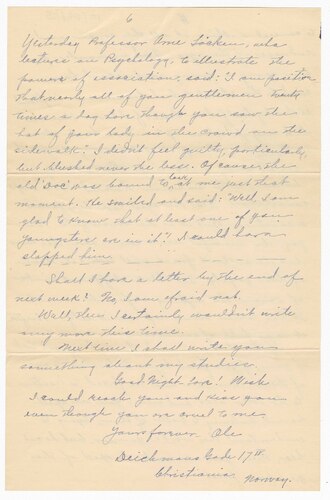 6
Yesterday Professor Arne Löchen, who
lectures on Psychology, to illustrate the
powers of association, said: "I am positive
that nearly all of you gentlemen twenty
times a day have thought you saw the
hat of your lady in the crowd on the
sidewalk." I didn't feel guilty, particularly,
but blushed never the less. Of course the
old Doc' was bound to look at me just that
moment. He smiled and said: "Well, I am
glad to know that at least one of you
youngsters are in it." I could have
slapped him.
Shall I have a letter by the end of
next week? No, I am afraid not.
Well, then I certainly wouldn't write
any more this time.
Next time I shall write you
something about my studies.
Good Night Love! Wish
I could reach you and kiss you
even though you are cruel to me
Yours forever Ole
Deichmans Gade 17 II
Christiania Norway.